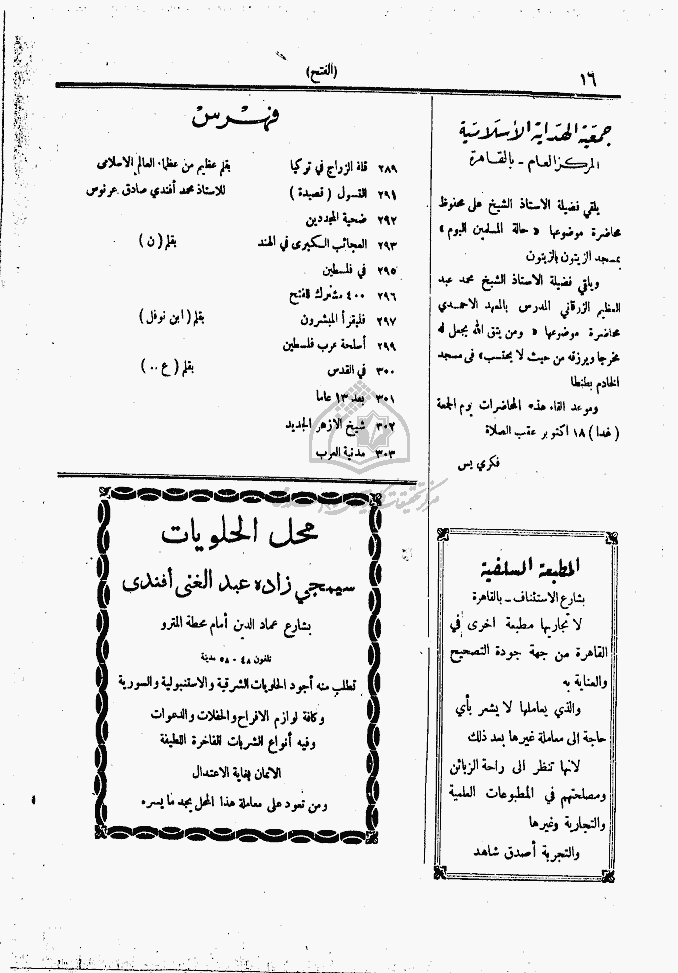 ١٦
(الفتح)
جمعية الهداية الاسلامية
المركز العام - بالقاهرة
يلقي فضيلة الاستاذ الشيخ علي محفوظ
محاضرة موضوعها « حالة المسلمين اليوم »
بمسجد الزيتون بالزيتون
ويلقي فضيلة الاستاذ الشيخ محمد عبد
العظيم الزرقاني المدرس بالمعهد الاحمدي
محاضرة موضوعها « ومن يتق الله يجعل له
مخرجا ويرزقه من حيث لا يحتسب» في مسجد
الخادم بطنطا
وموعد القاء هذه المحاضرات يوم الجمعة
( غدا ) ١٨ اكتوبر عقب الصلاة
فكري يس
المطبعة السلفية
بشارع الاستئناف - بالقاهرة
لا تجاريها مطبعة اخرى في
القاهرة من جهة جودة التصحيح
والعناية به
والذي يعاملها لا يشعر بأي
حاجة الى معاملة غيرها بعد ذلك
لانها تنظر الى راحة الزبائن
ومصلحتهم في المطبوعات العلمية
والتجارية وغيرها
والتجربة أصدق شاهد
فهرس
٢٨٩ قلة الزواج في تركيا بقلم عظيم من عظماء العالم الاسلامي
٢٩١ التسول ( قصيدة ) للاستاذ محمد أفندي صادق عرنوس
٢٩٢ ضحية المجددين
٢٩٣ العجائب الكبرى في الهند بقلم ( ن )
٢٩٥ في فلسطين
٢٩٦ ٤٠٠ مشترك للفتح
٢٩٧ فليقرأ المبشرون بقلم ( ابن نوفل )
٢٩٩ أسلحة عرب فلسطين
٣٠٠ في القدس بقلم ( ع .. )
٣٠١ بعد ١٣ عاما
٣٠٢ شيخ الازهر الجديد
٣٠٣ مدنية العرب
محل الحلويات
سيمجي زاده عبد الغني أفندي
بشارع عماد الدين أمام محطة المترو
تلفون ٤٨ - ٥٨ مدينة
تطلب منه أجود الحلويات الشرقية والاستنبولية والسورية
وكافة لوازم الافراح والحفلات والدعوات
وفيه أنواع الشربات الفاخرة اللطيفة
الاثمان بغاية الاعتدال
ومن تعود على معاملة هذا المحل يجد ما يسره.